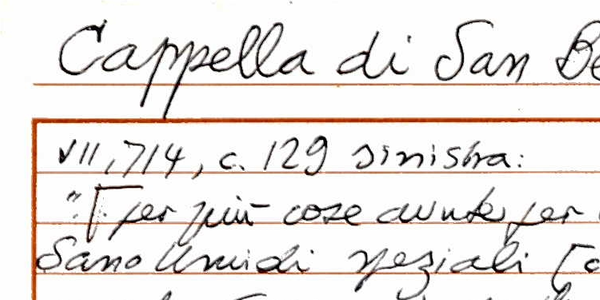 Cappella di San Be
VII, 714, c. 129 sinistra:
"[ per più cose avute per
Sano Umidi speziali [o